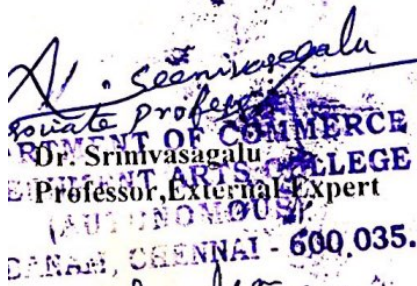 N. Seenivasagalu
sociate professor
RTMENT OF COMMERCE
Dr. Srinivasagalu
ENT ARTS COLLEGE
Professor, External Expert
(AUTONOMOUS)
DANAM, CHENNAI - 600,035.